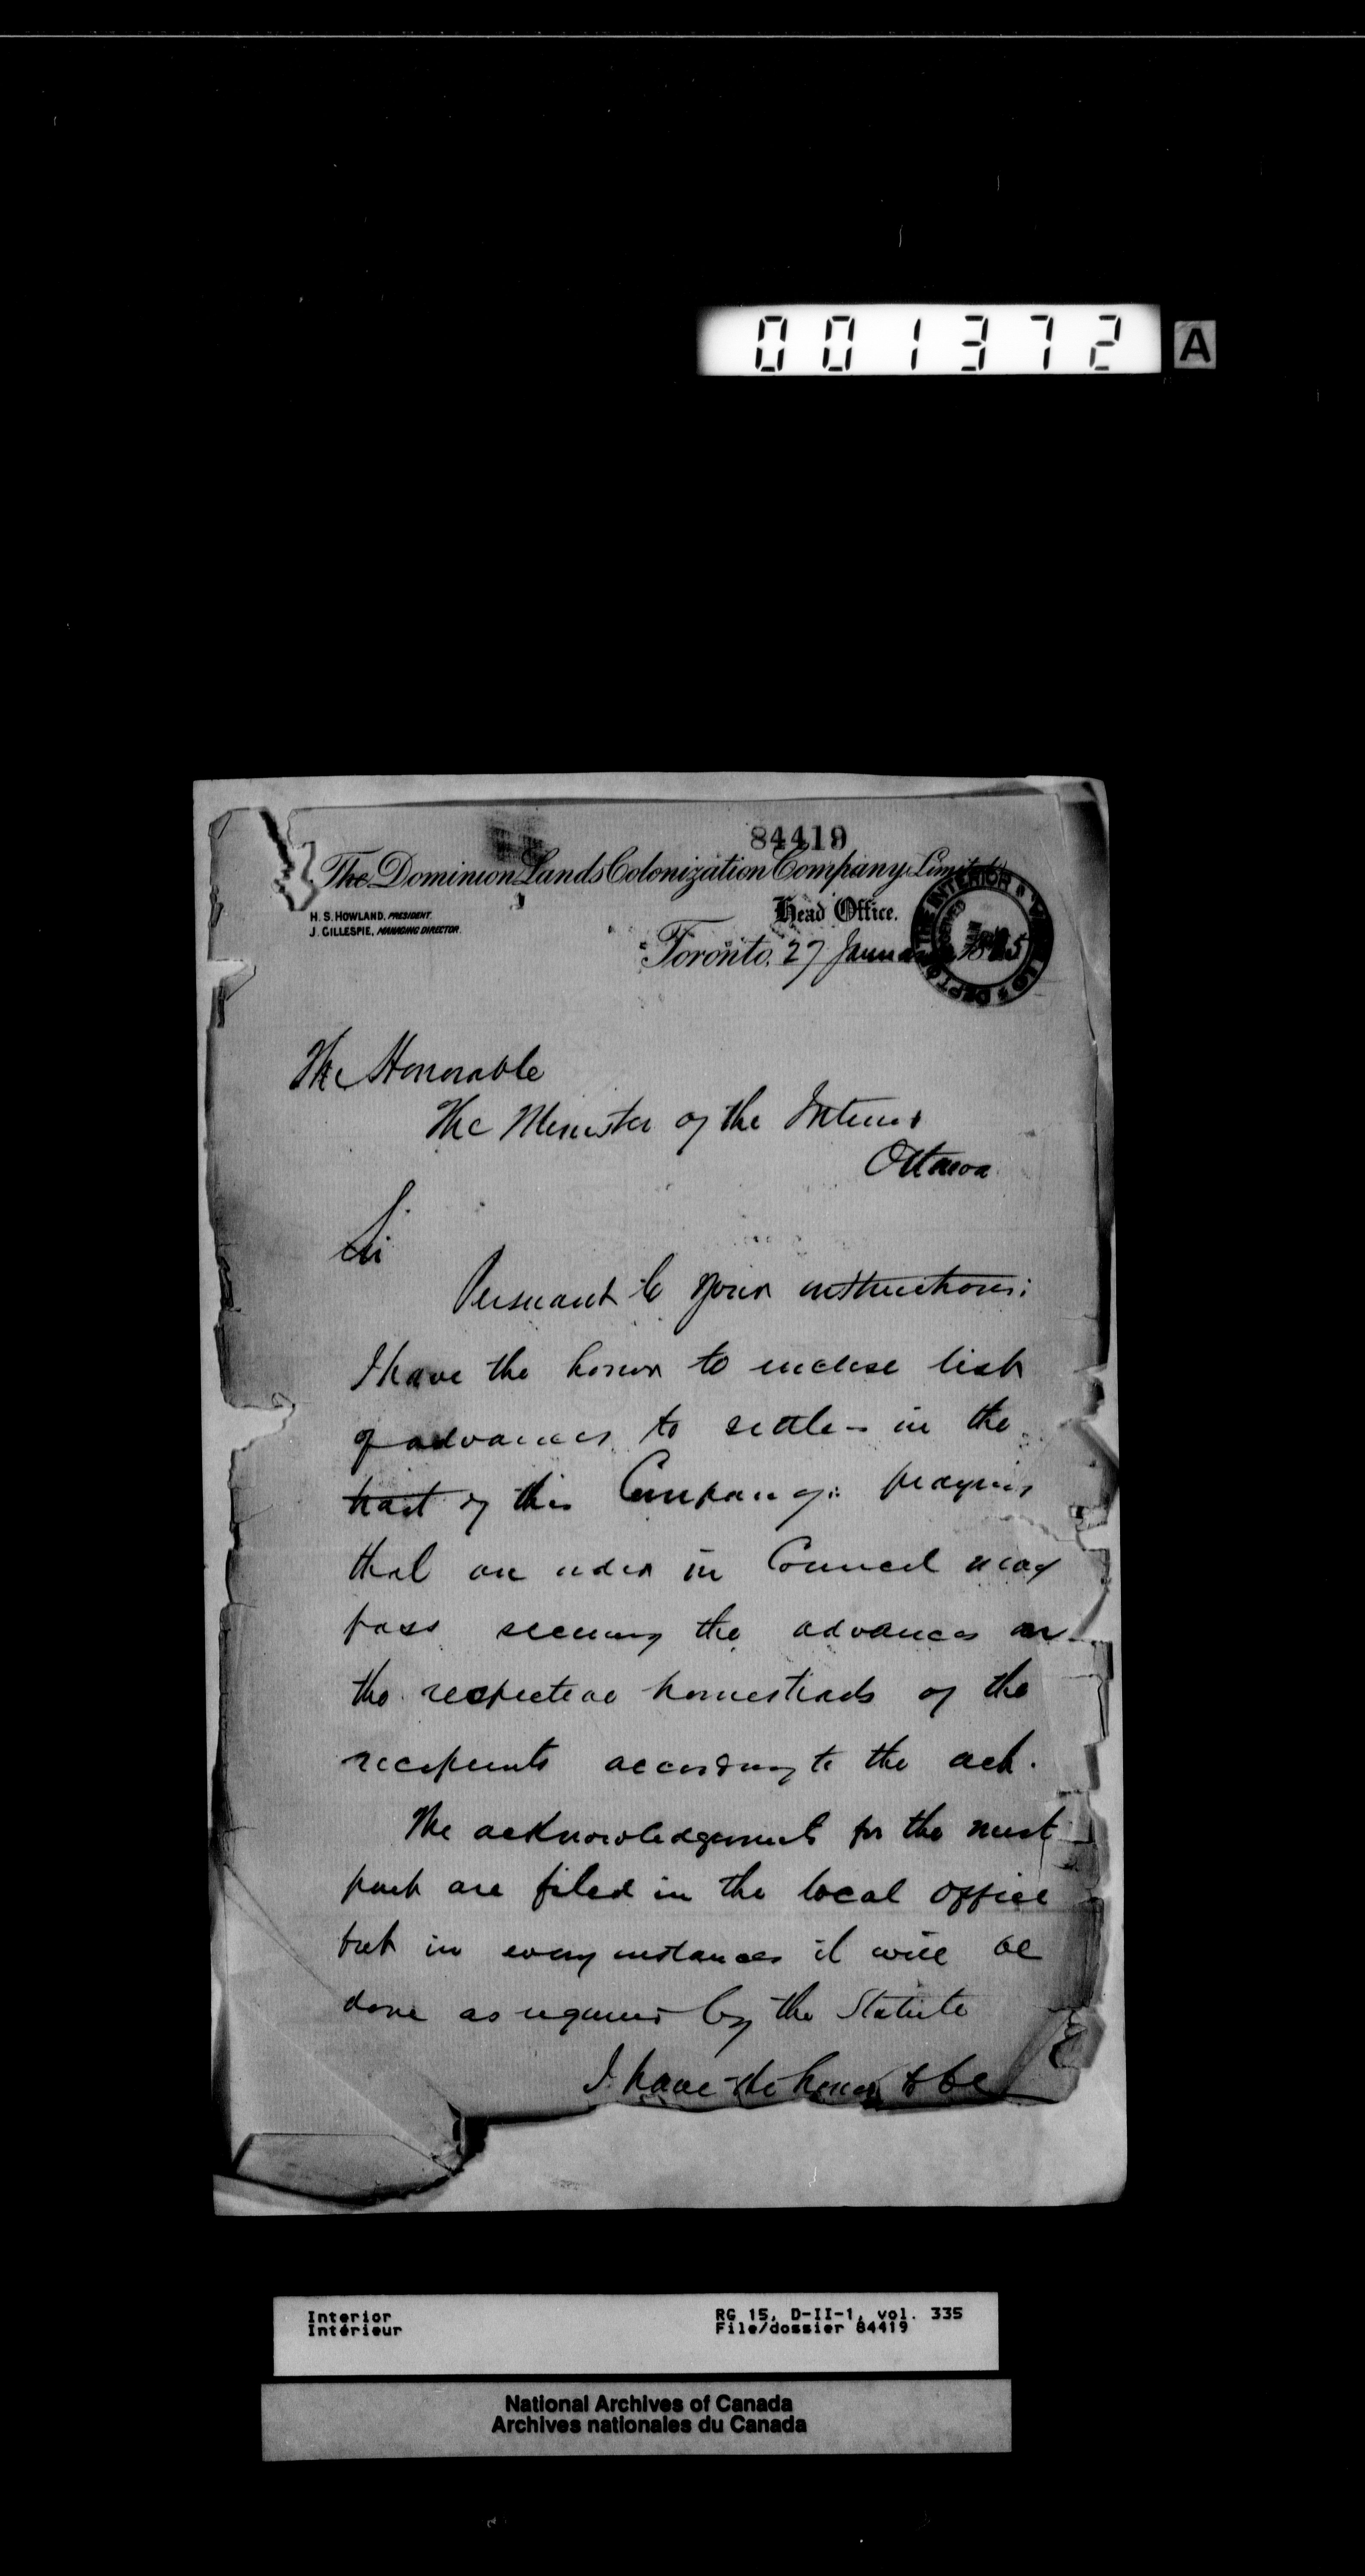 001372 A
84419
The Dominion Lands Colonization Company Limited
Head Office.
H. S. HOWLAND, PRESIDENT.
J. GILLESPIE, MANAGING DIRECTOR.
Toronto, 27 January 1885
DEPT OF THE INTERIOR
RECEIVED
The Honorable
The Minister of the Interior
Ottawa
Sir
Pursuant to your instructions:
I have the honor to enclose list
of advances to settlers in the
tract of this Company: praying
that an order in Council may
pass securing the advances on
the respective homesteads of the
recipients according to the act.
The acknowledgements for the most
part are filed in the local office
but in every instances it will be
done as required by the Statute
I have the honor to be
Interior
Intérieur
RG 15, D-II-1, vol. 335
File/dossier 84419
National Archives of Canada
Archives nationales du Canada